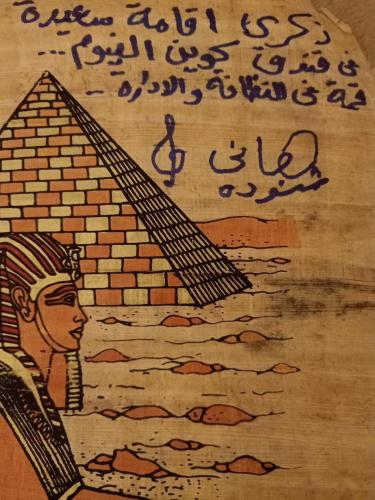 ذكرى اقامة سعيدة
فى فندق كوين الفيوم ...
قمة فى النظافة والادارة ..
هانى
شنوده